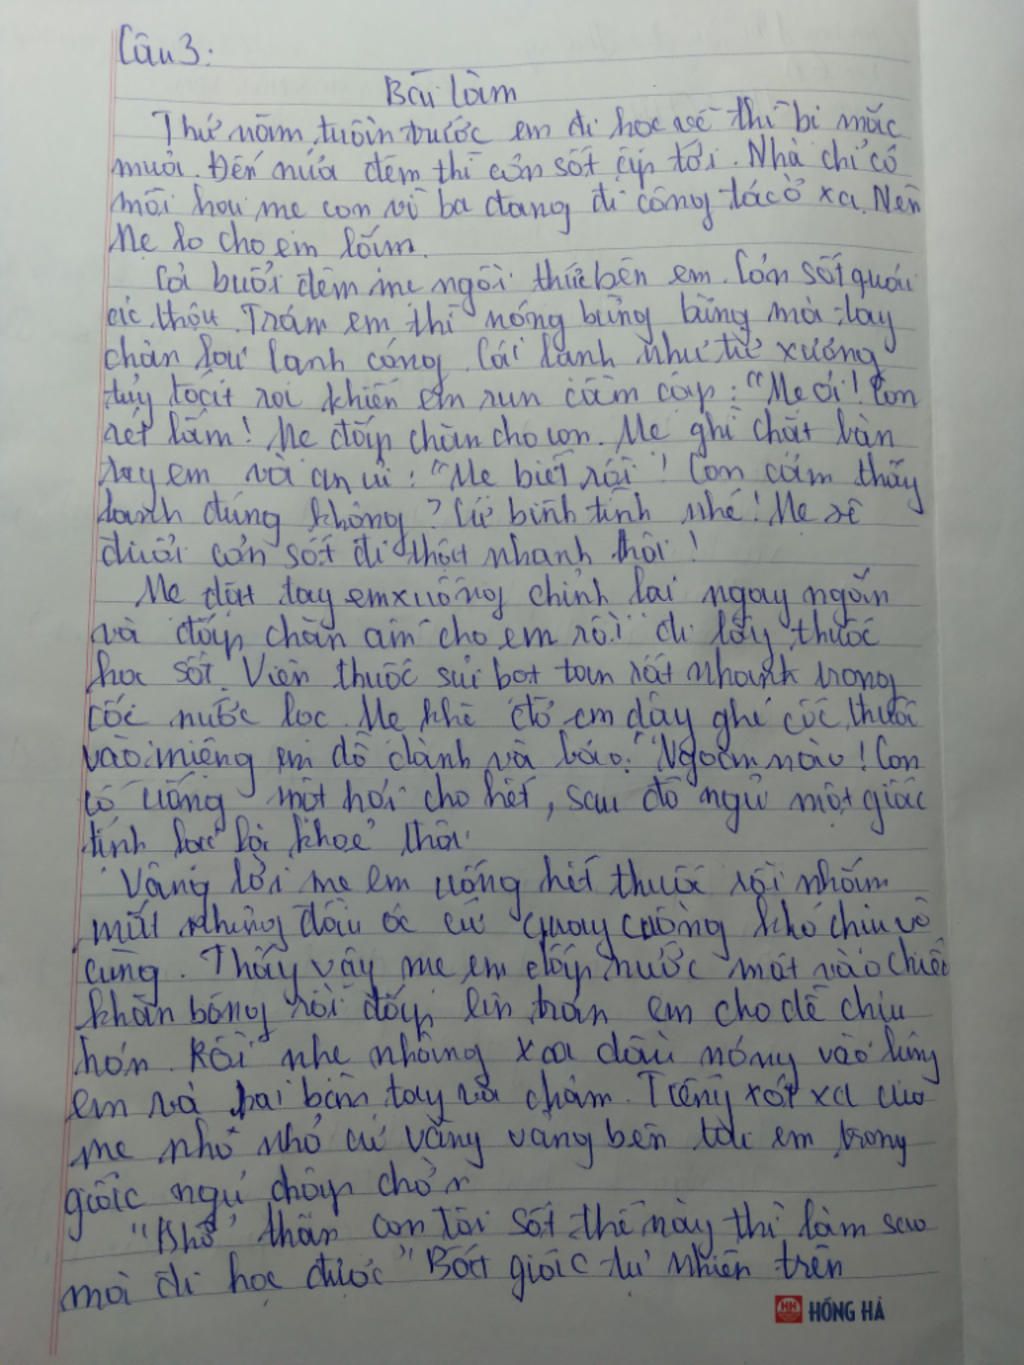 Câu 3:
Bài làm
Thứ năm tuần trước em đi học về thì bị mắc
mưa. Đến nửa đêm thì cơn sốt ập tới. Nhà chỉ có
mỗi hai mẹ con vì ba đang đi công tác ở xa. Nên
Mẹ lo cho em lắm.
Cả buổi đêm mẹ ngồi thức bên em. Cơn sốt quái
ác thật. Trán em thì nóng bừng bừng mà tay
chân lại lạnh cóng. Cái lạnh như từ xương
tủy toát rơi khiến em run cầm cập: "Mẹ ơi! Con
rét lắm! Mẹ đắp chăn cho con. Mẹ ghì chặt bàn
tay em và an ủi: "Mẹ biết rồi! Con cảm thấy
lạnh đúng không? Cứ bình tĩnh nhé! Mẹ sẽ
đuổi cơn sốt đi thật nhanh thôi!
Mẹ đặt tay em xuống chỉnh lại ngay ngắn
và đắp chăn ấm cho em rồi đi lấy thuốc
hạ sốt. Viên thuốc sủi bọt tan rất nhanh trong
cốc nước lọc. Mẹ khẽ đỡ em dậy ghé cốc thuốc
vào miệng em dỗ dành và bảo: "Ngoan nào! Con
cố uống một hơi cho hết, sau đó ngủ một giấc
tỉnh lại khoẻ thôi.
Vâng lời mẹ em uống hết thuốc rồi nhắm
mắt nhưng đầu óc cứ quay cuồng khó chịu vô
cùng. Thấy vậy mẹ em đắp nước mát vào chiếc
khăn bông rồi đắp lên trán em cho dễ chịu
hơn. Rồi nhẹ nhàng xoa dầu nóng vào lưng
em và hai bàn tay và chân. Tiếng xót xa của
mẹ nho nhỏ cứ văng vẳng bên tai em trong
giấc ngủ chập chờn
"Khổ thân con tôi sốt thế này thì làm sao
mà đi học được" Bất giác tự nhiên trên
HỒNG HÀ